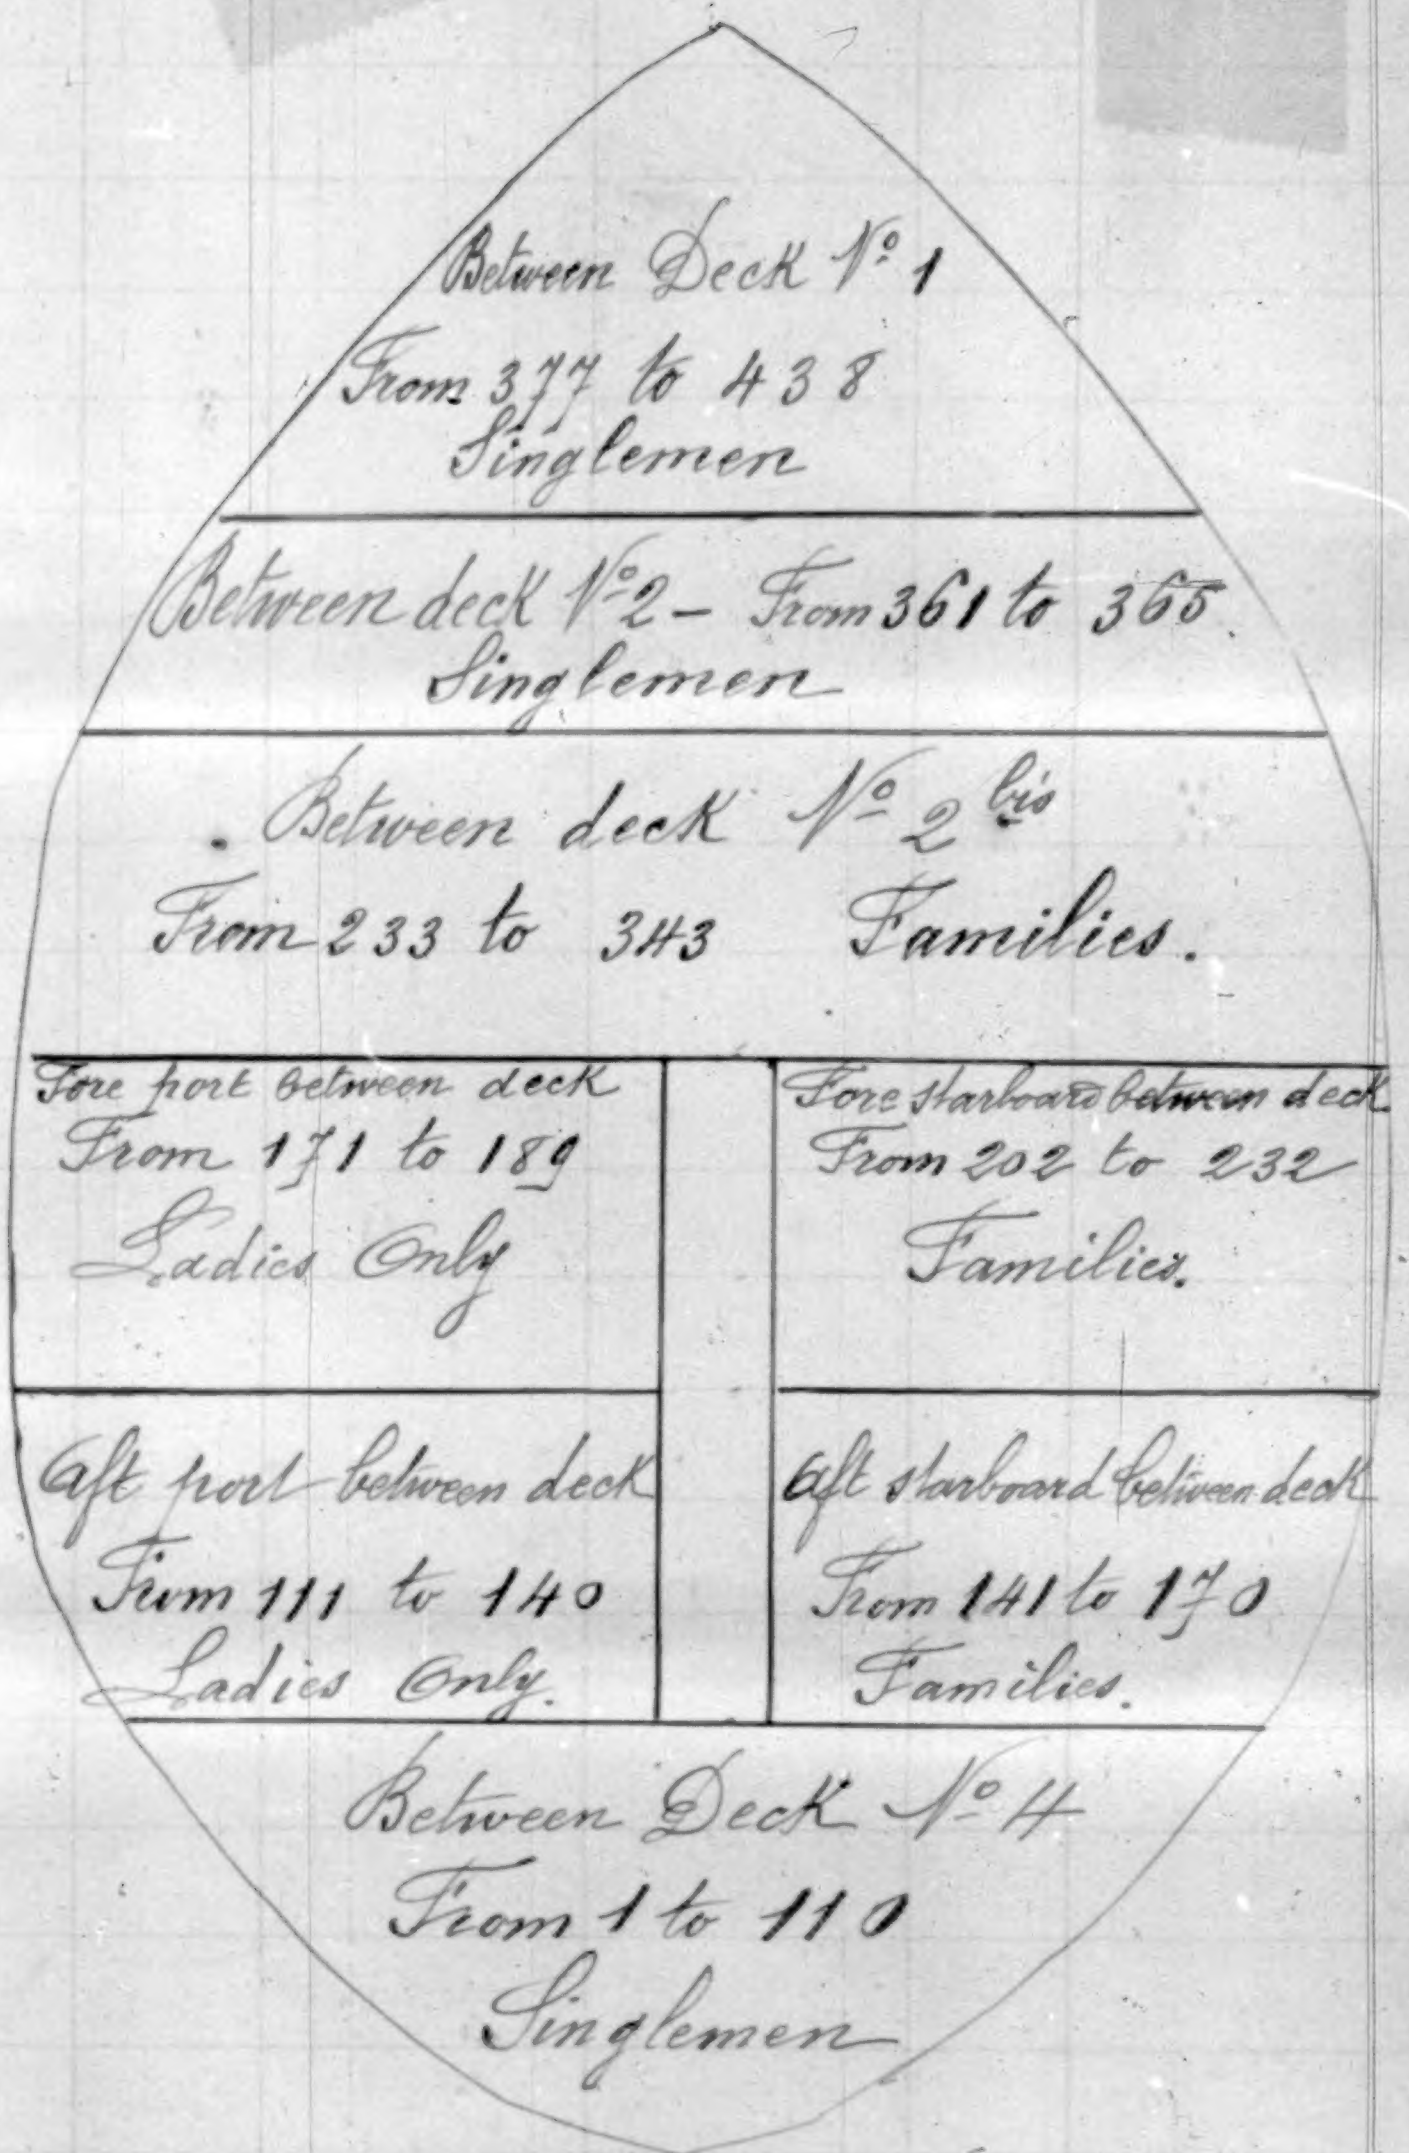 Between Deck Nº 1
From 377 to 438
Singlemen
Between deck Nº 2 – From 361 to 365.
Singlemen
Between deck Nº 2 bis
From 233 to 343 Families.
Fore port between deck
From 171 to 189
Ladies Only
Fore starboard between deck
From 202 to 232
Families.
Aft port between deck
From 111 to 140
Ladies Only.
Aft starboard between deck
From 141 to 170
Families.
Between Deck Nº 4
From 1 to 110
Singlemen